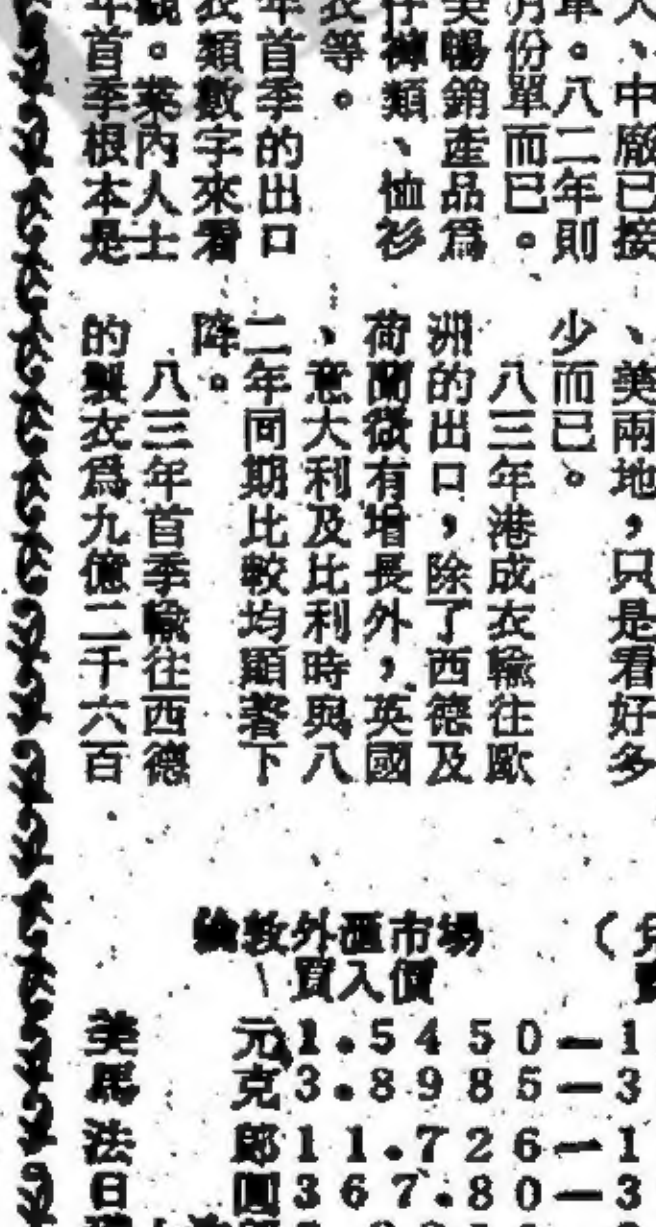 人、中廠已接
單。八二年則
月份單而已。
美暢銷產品爲
仔褲類、恤衫
衣等。
年首季的出口
衣類數字來看
觀。業內人士
年首季根本是
、美兩地,只是看好多
少而已。
八三年港成衣輸往歐
洲的出口,除了西德及
荷蘭微有增長外,英國
、意大利及比利時與八
二年同期比較均顯著下
降。
八三年首季輸往西德
的製衣爲九億二千六百
倫敦外匯市場
買入價
美 元1.5450—1
馬 克3.8985—3
法 郎11.726—1
日 圓367.80—3